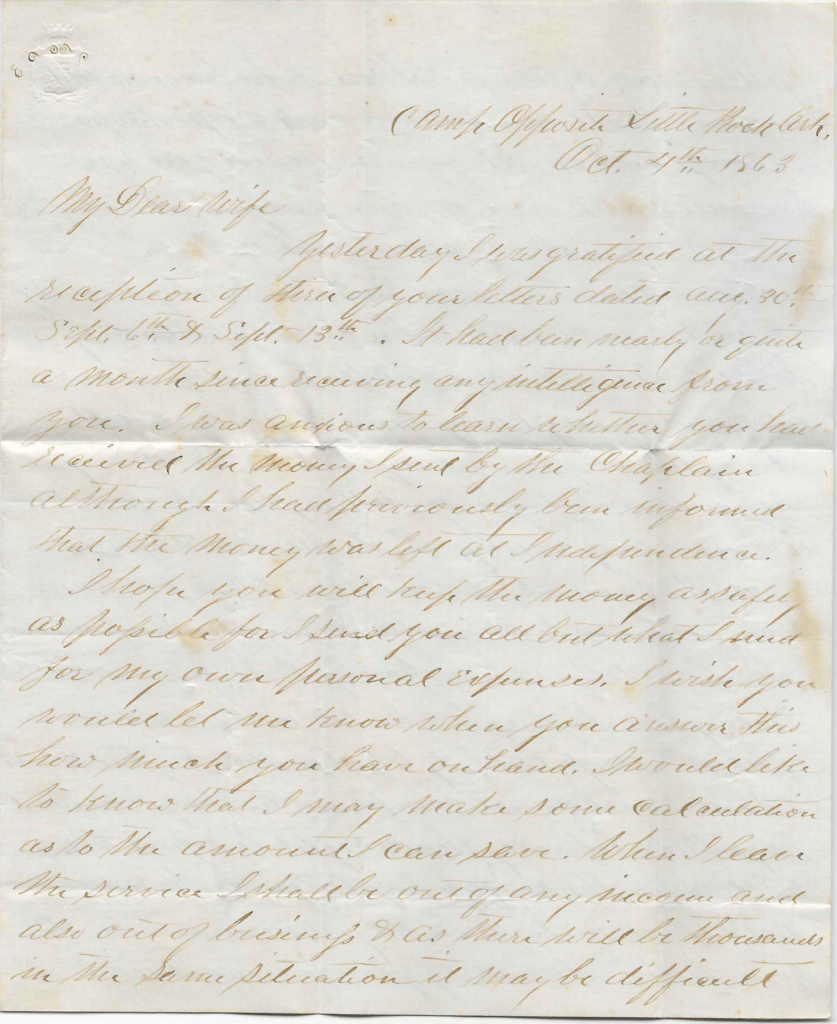 Camp Opposite Little Rock Ark,
Oct. 4th 1863
My Dear Wife
Yesterday I was gratified at the
reception of three of your letters dated Aug. 30th
Sept. 6th & Sept. 13th. It had been nearly or quite
a month since receiving any intelligence from
you. I was anxious to learn whether you had
received the money I sent by the Chaplain
although I had previously been informed
that the money was left at Independence.
I hope you will keep the money as safely
as possible for I send you all but what I need
for my own personal expenses. I wish you
would let me know when you answer this
how much you have on hand. I would like
to know that I may make some calculation
as to the amount I can save. When I leave
the service I shall be out of any income and
also out of business & as there will be thousands
in the same situation it may be difficult